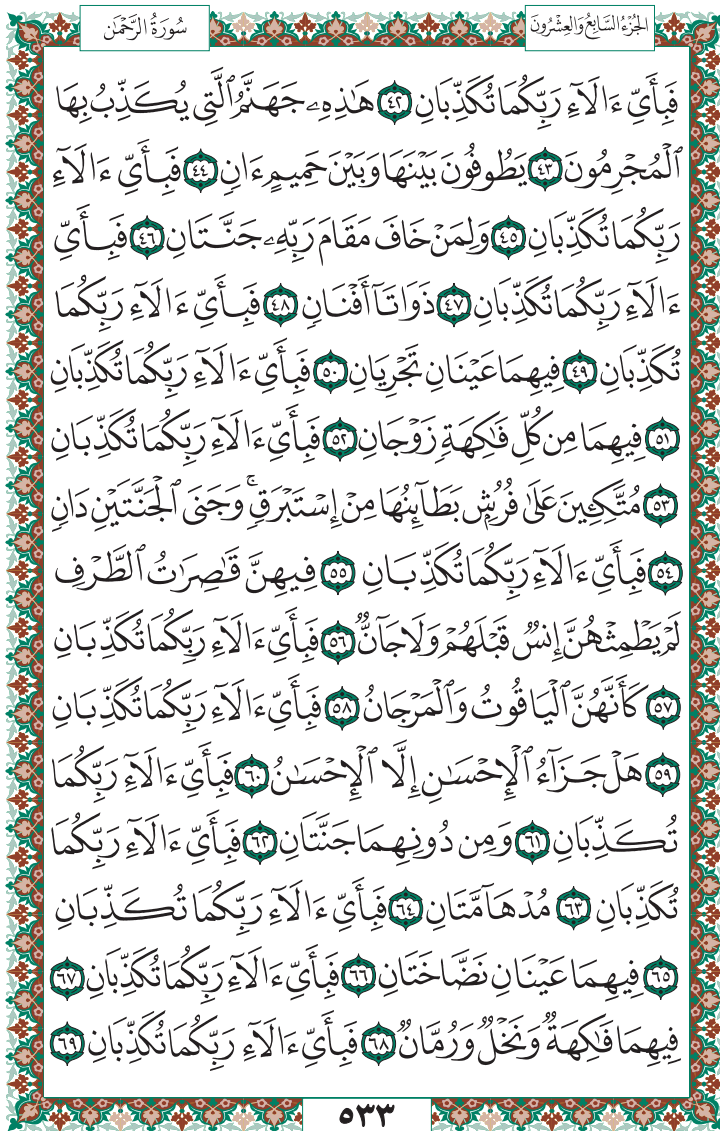 الجُزْءُ السَّابِعُ وَالعِشْرُونَ
سُورَةُ الرَّحْمَٰن
فَبِأَيِّ ءَالَآءِ رَبِّكُمَا تُكَذِّبَانِ ٤٢ هَٰذِهِۦ جَهَنَّمُ ٱلَّتِي يُكَذِّبُ بِهَا
ٱلْمُجْرِمُونَ ٤٣ يَطُوفُونَ بَيْنَهَا وَبَيْنَ حَمِيمٍ ءَانٍ ٤٤ فَبِأَيِّ ءَالَآءِ
رَبِّكُمَا تُكَذِّبَانِ ٤٥ وَلِمَنْ خَافَ مَقَامَ رَبِّهِۦ جَنَّتَانِ ٤٦ فَبِأَيِّ
ءَالَآءِ رَبِّكُمَا تُكَذِّبَانِ ٤٧ ذَوَاتَآ أَفْنَانٍ ٤٨ فَبِأَيِّ ءَالَآءِ رَبِّكُمَا
تُكَذِّبَانِ ٤٩ فِيهِمَا عَيْنَانِ تَجْرِيَانِ ٥٠ فَبِأَيِّ ءَالَآءِ رَبِّكُمَا تُكَذِّبَانِ
٥١ فِيهِمَا مِن كُلِّ فَٰكِهَةٍ زَوْجَانِ ٥٢ فَبِأَيِّ ءَالَآءِ رَبِّكُمَا تُكَذِّبَانِ
٥٣ مُتَّكِـِٔينَ عَلَىٰ فُرُشٍۭ بَطَآئِنُهَا مِنْ إِسْتَبْرَقٍۚ وَجَنَى ٱلْجَنَّتَيْنِ دَانٍ
٥٤ فَبِأَيِّ ءَالَآءِ رَبِّكُمَا تُكَذِّبَانِ ٥٥ فِيهِنَّ قَٰصِرَٰتُ ٱلطَّرْفِ
لَمْ يَطْمِثْهُنَّ إِنسٌ قَبْلَهُمْ وَلَا جَآنٌّ ٥٦ فَبِأَيِّ ءَالَآءِ رَبِّكُمَا تُكَذِّبَانِ
٥٧ كَأَنَّهُنَّ ٱلْيَاقُوتُ وَٱلْمَرْجَانُ ٥٨ فَبِأَيِّ ءَالَآءِ رَبِّكُمَا تُكَذِّبَانِ
٥٩ هَلْ جَزَآءُ ٱلْإِحْسَٰنِ إِلَّا ٱلْإِحْسَٰنُ ٦٠ فَبِأَيِّ ءَالَآءِ رَبِّكُمَا
تُكَذِّبَانِ ٦١ وَمِن دُونِهِمَا جَنَّتَانِ ٦٢ فَبِأَيِّ ءَالَآءِ رَبِّكُمَا
تُكَذِّبَانِ ٦٣ مُدْهَآمَّتَانِ ٦٤ فَبِأَيِّ ءَالَآءِ رَبِّكُمَا تُكَذِّبَانِ
٦٥ فِيهِمَا عَيْنَانِ نَضَّاخَتَانِ ٦٦ فَبِأَيِّ ءَالَآءِ رَبِّكُمَا تُكَذِّبَانِ ٦٧
فِيهِمَا فَٰكِهَةٌ وَنَخْلٌ وَرُمَّانٌ ٦٨ فَبِأَيِّ ءَالَآءِ رَبِّكُمَا تُكَذِّبَانِ ٦٩
٥٣٣